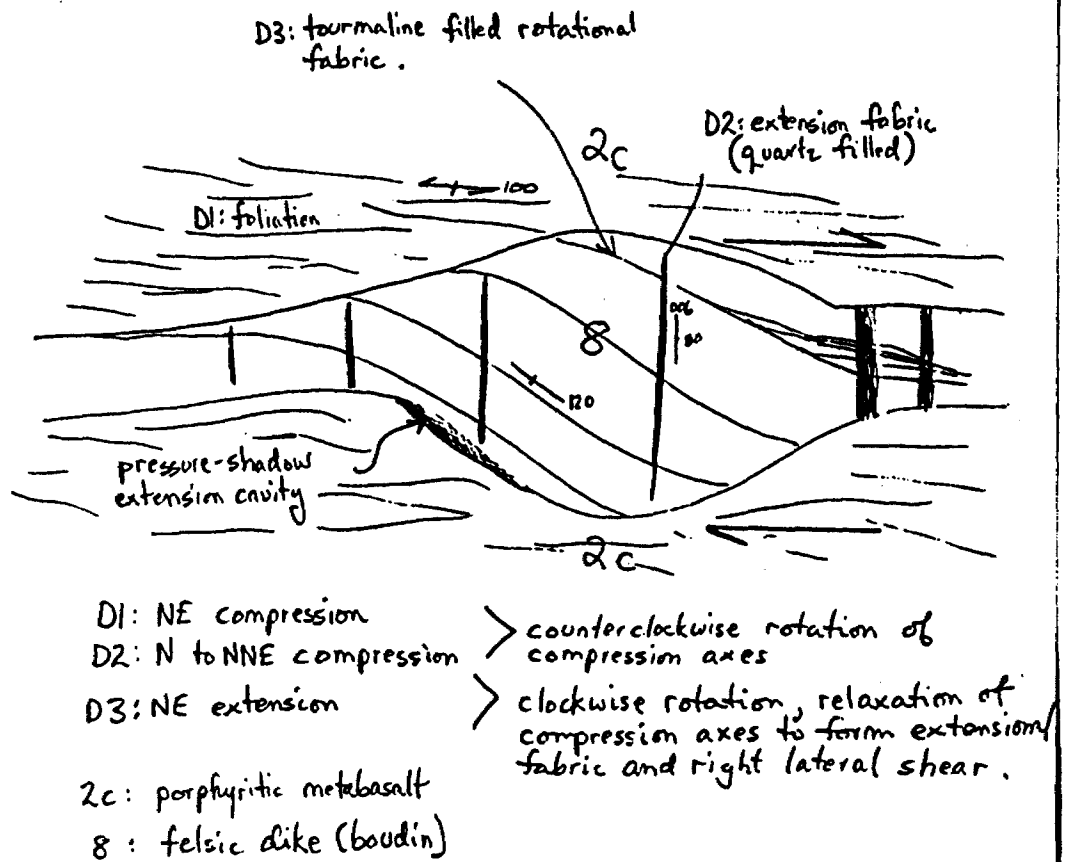 D3: tourmaline filled rotational
fabric.
D2: extension fabric
(quartz filled)
2c
100
D1: foliation
8
80
120
pressure-shadow
extension cavity
2c
D1: NE compression
D2: N to NNE compression
counterclockwise rotation of
compression axes
D3: NE extension
clockwise rotation, relaxation of
compression axes to form extensional
fabric and right lateral shear.
2c: porphyritic metabasalt
8: felsic dike (boudin)